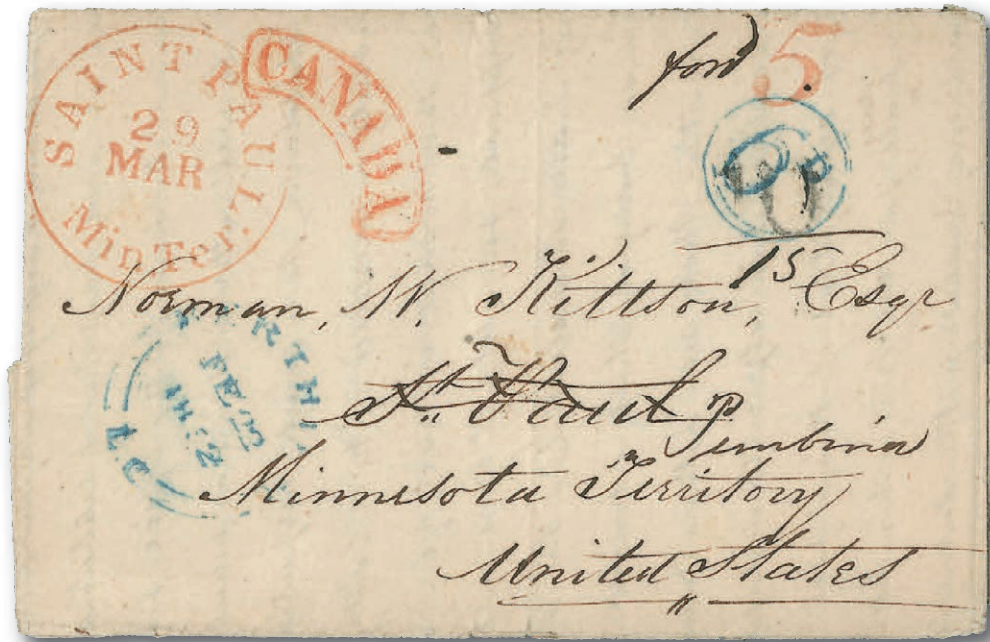 SAINT PAUL
29
MAR
Min Ter.
CANADA
ford
5
6D
10
15
Norman, W. Kittson, Esqr
St. Paul
Pembina
Minnesota Territory
United States
FE
1852
L.C